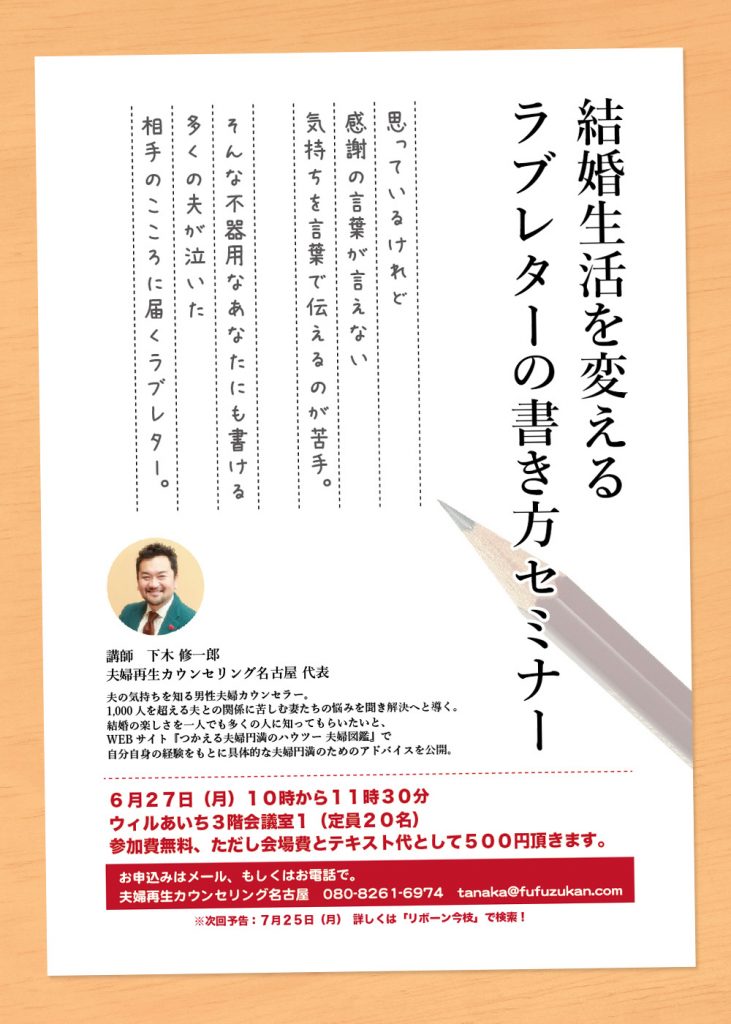 結婚生活を変える
ラブレターの書き方セミナー
思っているけれど
感謝の言葉が言えない
気持ちを言葉で伝えるのが苦手。
そんな不器用なあなたにも書ける
多くの夫が泣いた
相手のこころに届くラブレター。
講師　下木 修一郎
夫婦再生カウンセリング名古屋 代表
夫の気持ちを知る男性夫婦カウンセラー。
1,000人を超える夫との関係に苦しむ妻たちの悩みを聞き解決へと導く。
結婚の楽しさを一人でも多くの人に知ってもらいたいと、
WEBサイト『つかえる夫婦円満のハウツー 夫婦図鑑』で
自分自身の経験をもとに具体的な夫婦円満のためのアドバイスを公開。
６月２７日（月）１０時から１１時３０分
ウィルあいち３階会議室１（定員２０名）
参加費無料、ただし会場費とテキスト代として５００円頂きます。
お申込みはメール、もしくはお電話で。
夫婦再生カウンセリング名古屋　080-8261-6974　tanaka@fufuzukan.com
※次回予告：７月２５日（月）　詳しくは「リボーン今枝」で検索！